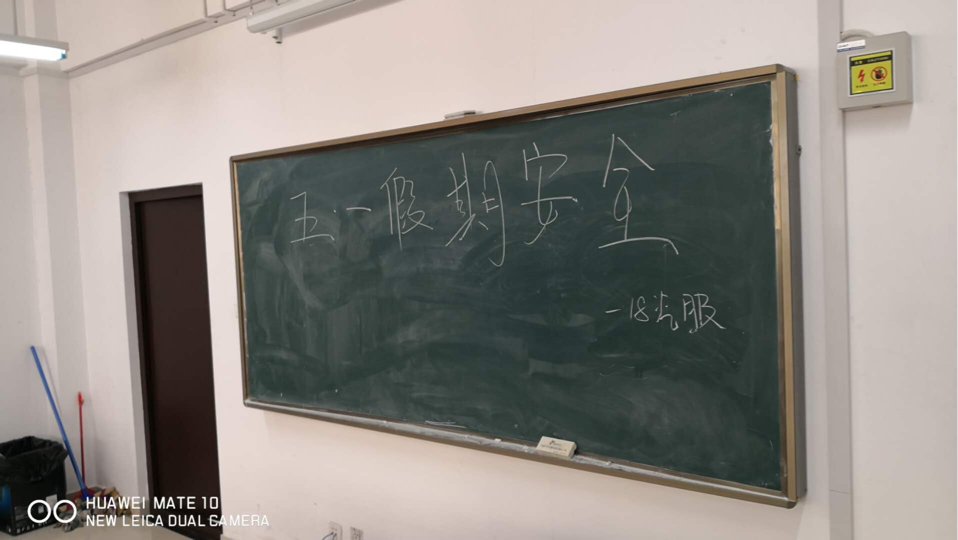 五一假期安全
-18汽服
HUAWEI MATE 10
NEW LEICA DUAL CAMERA